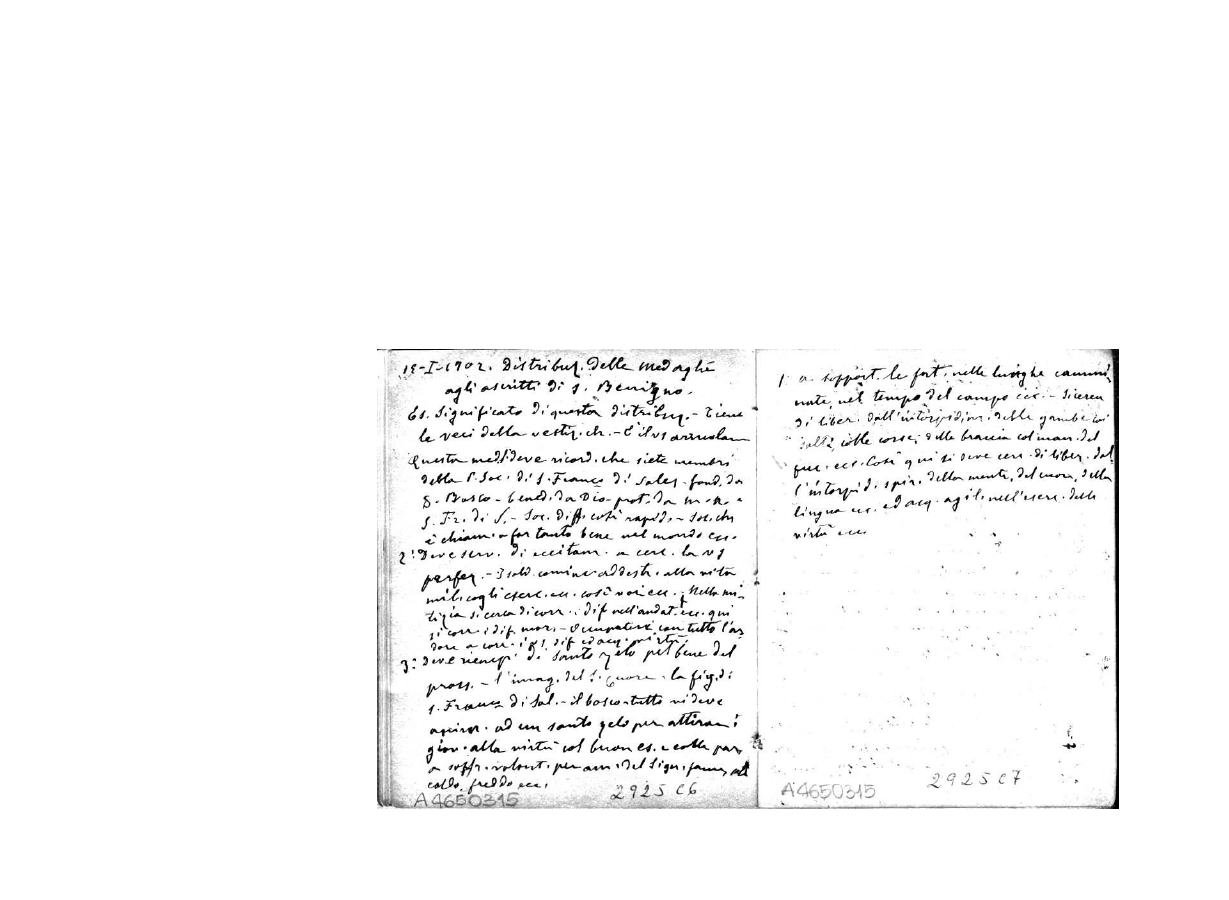 18-I-1902. Distribuz. delle medaglie
agli ascritti di S. Benigno.
Es. Significato di questa distribuz. - Tiene
le veci della vestiz. ch. - È il vs arruolam
Questa med. deve ricord. che siete membri
della P. Soc. di S. Franc. di Sales - fond. da
D. Bosco - bened. da Dio - prot. da M. A. e
S. Fr. di S. - Soc. diff. così rapid. - Soc. che
è chiam. a far tanto bene nel mondo ecc.
2° Deve serv. di eccitam. a cerc. la vs
perfez. - I sold. cominc. addestr. alla vita
mil. cogli eserc. ecc. così voi ecc. Nella mi-
lizia si cerca di corr. i dif. nell'andat. ecc. qui
si corr. i dif. mor. - Occupatevi con tutto l'ar
dore a corr. i vs. dif. ed acq. virtù
3° Deve riempi di santo zelo pel bene del
pross. - l'immag. del S. Cuore - la fig. di
S. Franc. di Sal. - il bosco tutto vi deve
ad un santo zelo per attirare i
giov. alla virtù col buon es. e colle par
a soffr. volent. per am. del Sign. fame,
caldo, freddo ecc.
A4650315 2925 C6
a support. le fort. nelle lunghe cammi
nate, nel tempo del campo ecc. - Si cerca
di liber. dall'intorpidim. delle gambe coi
salti, colle corse; delle braccia col man. del
fuc. ecc. Così qui si deve cerc. di liber. dal
l'intorpid. spir. della mente, del cuore, della
lingua ecc. ed acq. agil. nell'eserc. delle
virtù ecc.
A4650315 2925 C7